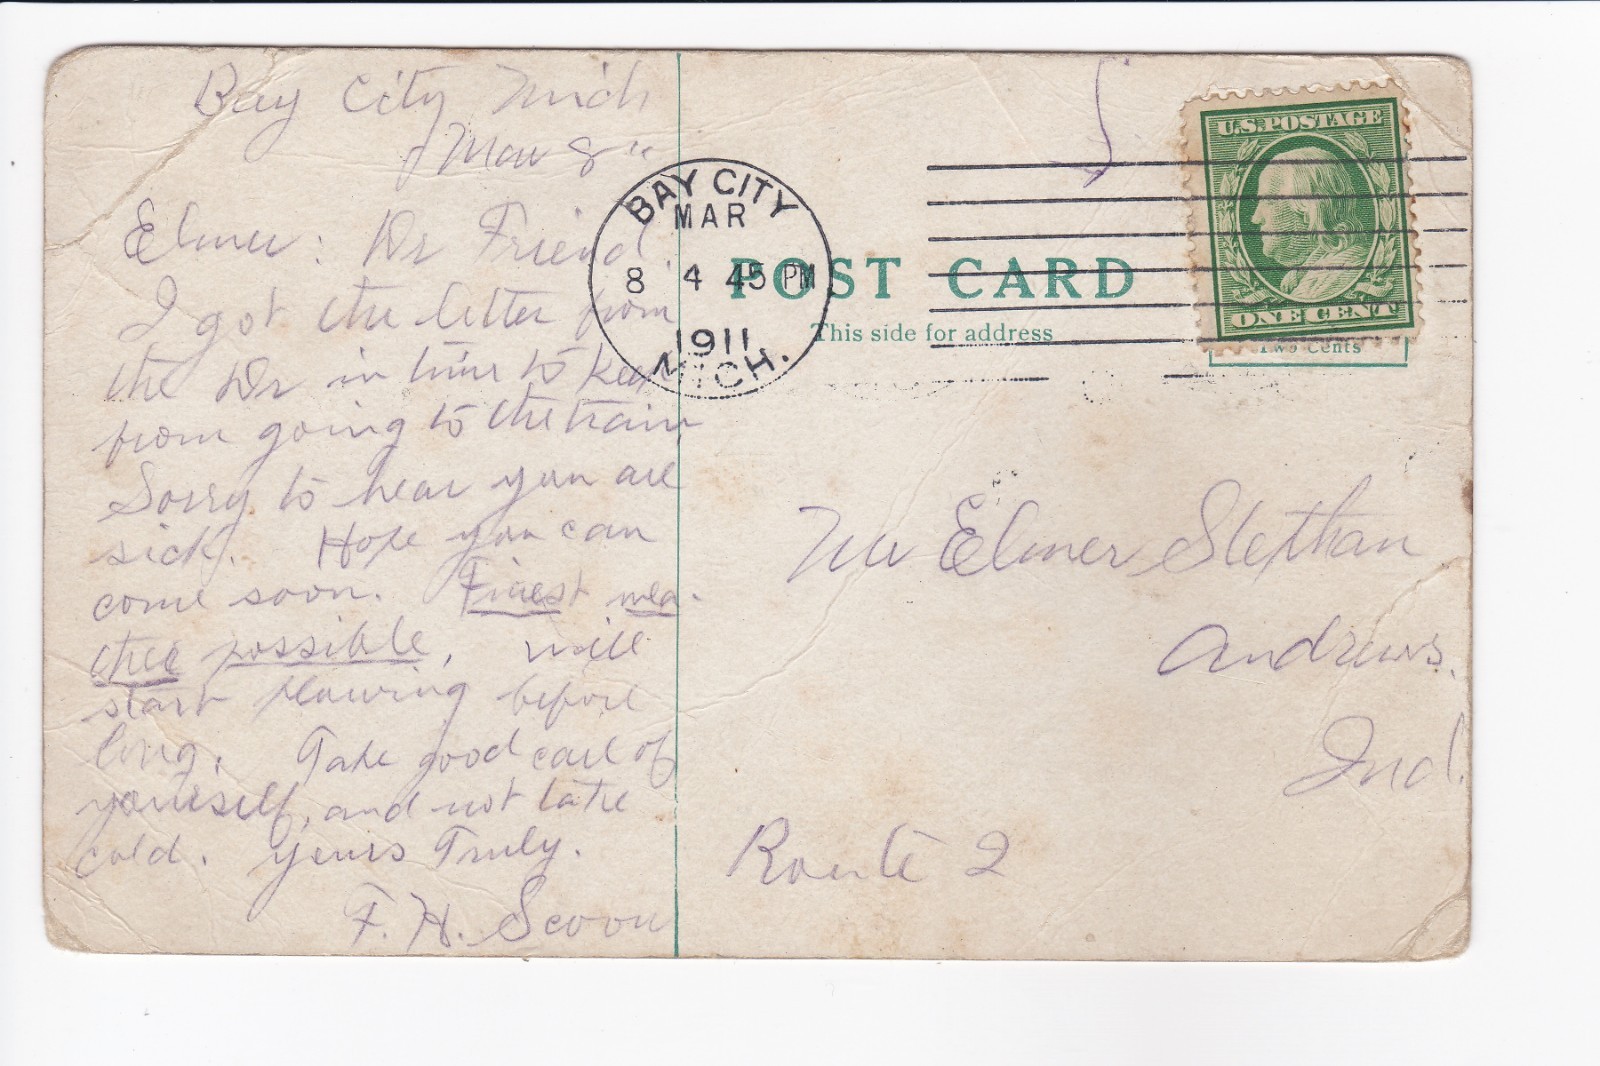 Bay City Mich
Mar 8"
Elmer: Dr Friend
I got the letter from
the Dr in time to keep
from going to the train
Sorry to hear you are
sick. Hope you can
come soon. Finest wea-
ther possible, will
start plowing before
long. Take good care of
yourself, and not take
cold. Yours Truly.
F. H. Scoon
BAY CITY
MAR
8 4 45 PM
1911
MICH.
POST CARD
This side for address
U.S. POSTAGE
ONE CENT
Two Cents
Mr Elmer Stephan
Andrews.
Ind.
Route 2